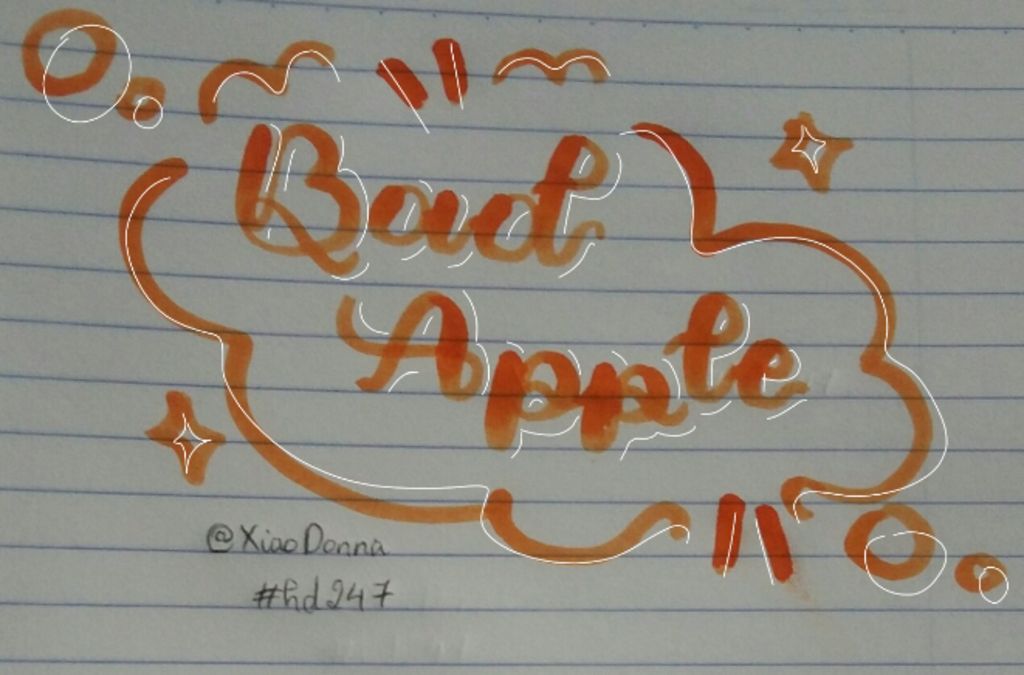 Bad
Apple
@XiaoDonna
#hd247